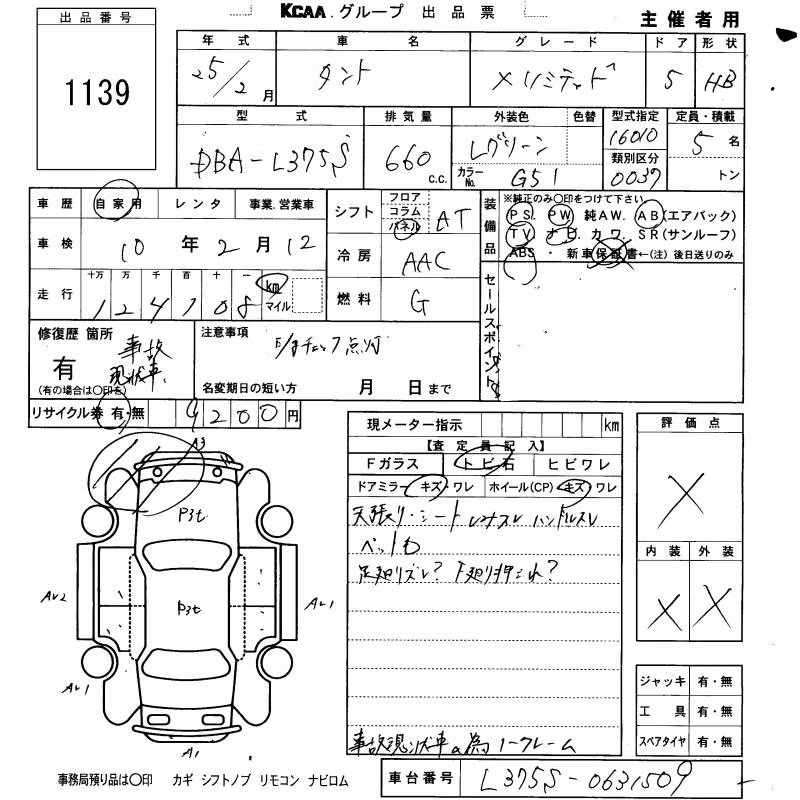 KCAA.グループ 出品票
主催者用
出品番号
1139
年式 車名 グレード ドア 形状
25/2月 タント Xリミテッド 5 HB
型式 排気量 外装色 色替 型式指定 定員・積載
DBA-L375S 660 c.c. Lグリーン 16010 5名
カラーNo. G51 類別区分 0037 トン
車歴 自家用 レンタ 事業.営業車
車検 10年2月12
走行 十万 万 千 百 十 一 km マイル
124108
シフト フロア コラム パネル AT
冷房 AAC
燃料 G
装備品
※純正のみ〇印をつけて下さい
PS. PW 純AW. AB(エアバック)
TV ナビ カワ. SR(サンルーフ)
ABS ・ 新車保証書←(注)後日送りのみ
セールスポイント
修復歴 箇所
有 事故 現状車
(有の場合は〇印を)
注意事項
E/gチェック点灯
名変期日の短い方 月 日まで
リサイクル券 有・無 9200円
現メーター指示 km
【査定員記入】
Fガラス トビ石 ヒビワレ
ドアミラー キズ・ワレ ホイール(CP) キズ・ワレ
天張り・シート ハンドルスレ
ペット
足廻りズレ? 下廻り押され?
事故現状車の為ノークレーム
評価点
X
内装 外装
X X
A3
P3t
P3t
AU2
AU1
AU1
A1
ジャッキ 有・無
工具 有・無
スペアタイヤ 有・無
事務局預り品は〇印 カギ シフトノブ リモコン ナビロム
車台番号 L375S-0631509